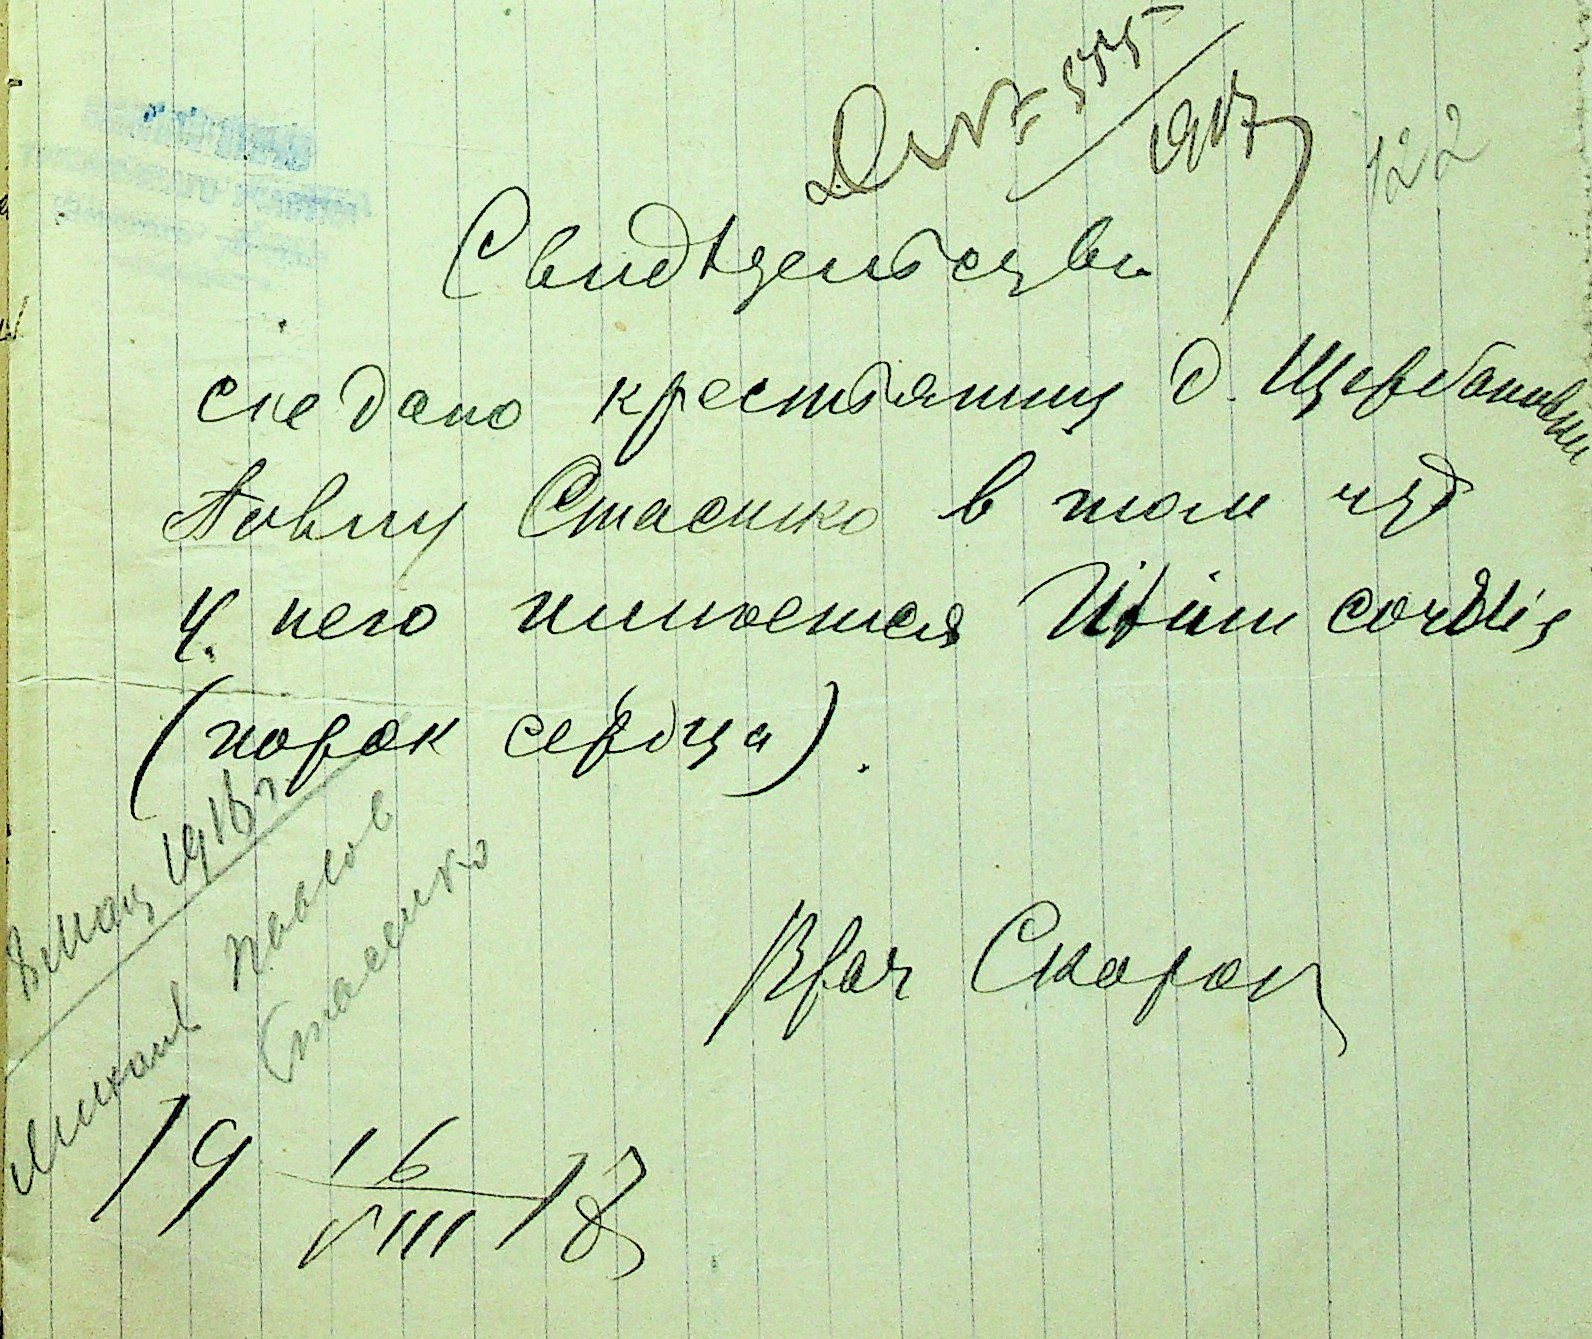 № 555/1917
122
Свидѣтельство
сие дано крестьянину д. Щербановки
Павлу Стасенко в том что
у него имеется Vitium cordis
(порок сердца).
Врач
1916 г.
Михаил Павлов
Стасенко
19 16/VIII 18